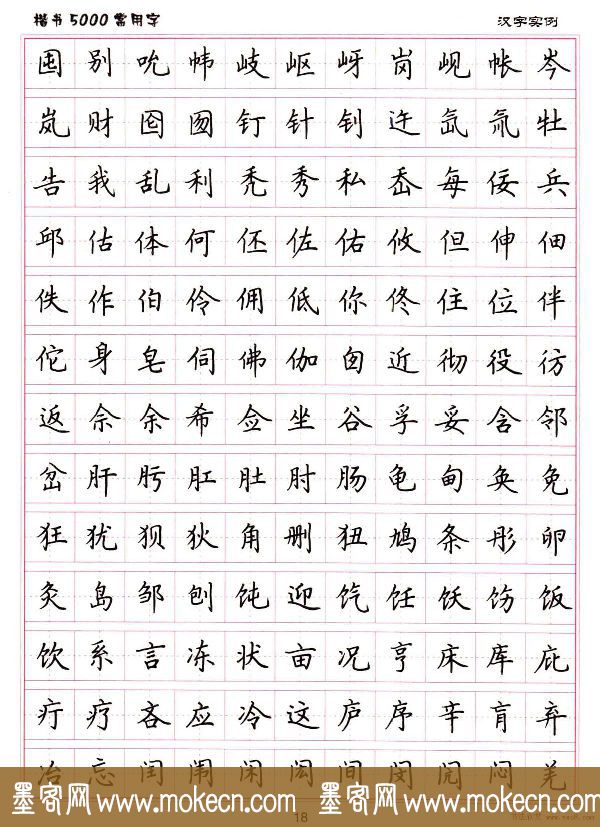 楷书5000常用字 汉字实例
囤别吮帏岐岖岈岗岘帐岑
岚财囵囫钉针钊迕氙氚牡
告我乱利秃秀私岙每佞兵
邱估体何伾佐佑攸但伸佃
佚作伯伶佣低你佟住位伴
佗身皂伺佛伽囱近彻役彷
返佘余希佥坐谷孚妥含邻
岔肝肟肛肚肘肠龟甸奂免
狂犹狈狄角删狃鸠条彤卵
灸岛邹刨饨迎饩饪饫饬饭
饮系言冻状亩况亨床库庇
疔疗吝应冷这庐序辛肓弃
冶忘闰闱闲闳间闵闶闷羌
墨客网www.mokecn.com 墨客网www.mokecn.com
18